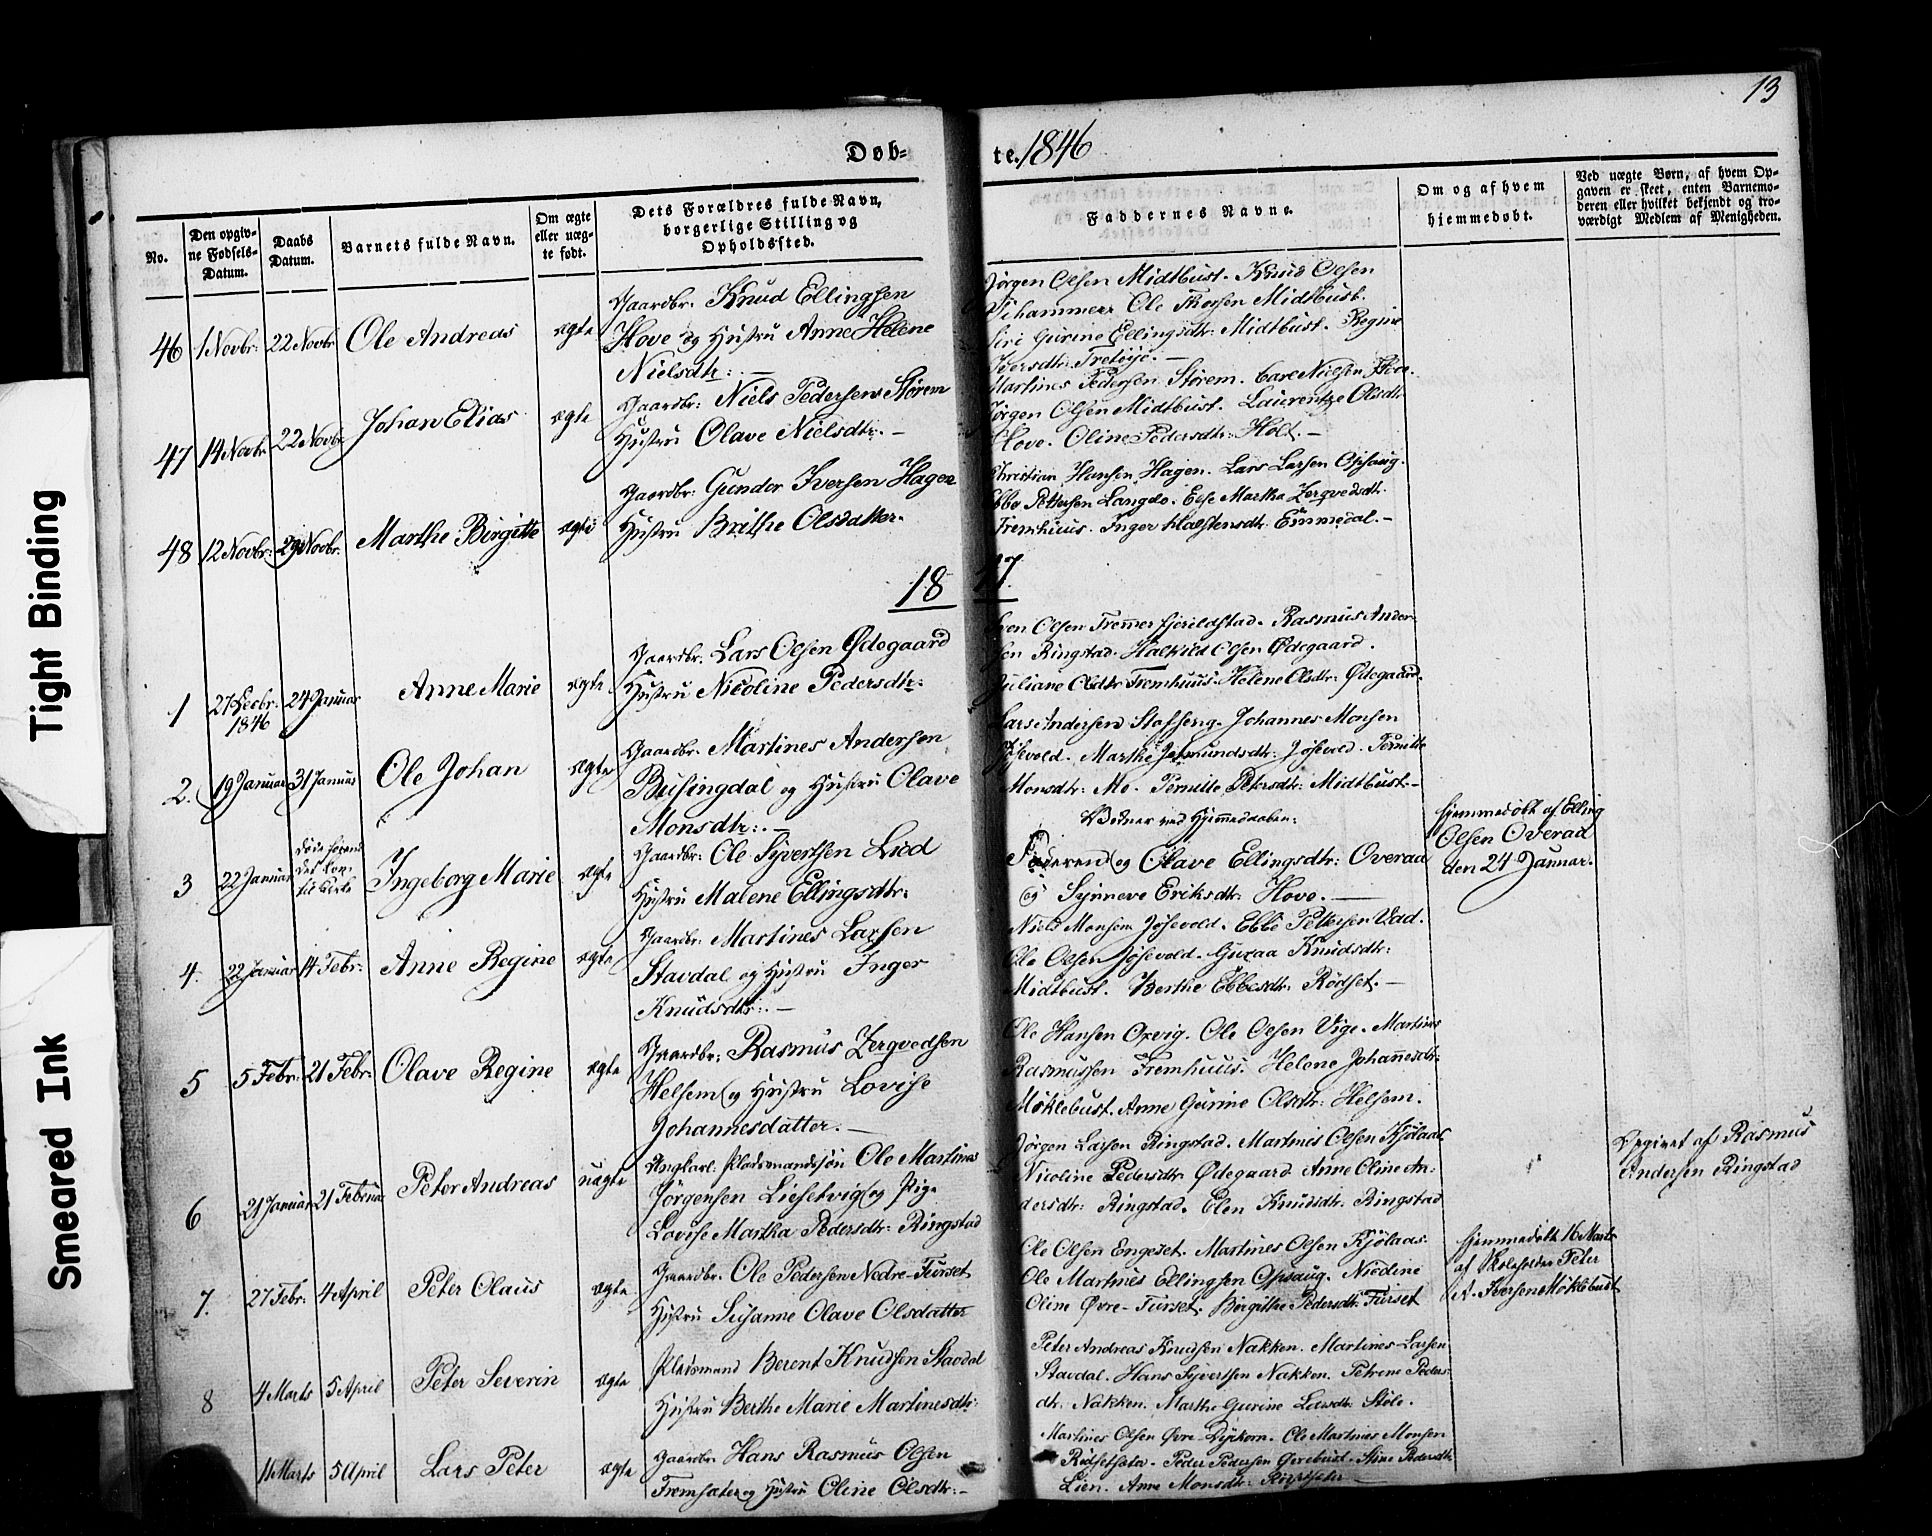 13
Døb-
te. 1846
No.
Den opgiv-
ne Fødsels-
Datum.
Daabs
Datum.
Barnets fulde Navn.
Om ægte
eller uæg-
te født.
Dets Forældres fulde Navn,
borgerlige Stilling og
Opholdssted.
Faddernes Navne.
Om og af hvem
hjemmedøbt.
Ved uægte Børn, af hvem Op-
gaven er skeet, enten Barnemo-
deren eller hvilket bekjendt og tro-
værdigt Medlem af Menigheden.
46 1 Novbr: 22 Novbr Ole Andreas ægte
Gaardbr. Knud Ellingsen
Hove og Hustru Anne Helene
Nielsdtr: . —
Jørgen Olsen Midtbust. Knud Olsen
Ole Thorsen Midtbust.
Siri Gurine Ellingsdtr: Midtbust. Regine
Iversdtr: Tretøye. —
47 14 Novbr. 22 Novbr. Johan Elias ægte
Gaardbr: Niels Pedersen Størem
Hustru Olave Nielsdtr. —
Martines Pedersen Størem. Nielsen Hove.
Jørgen Olsen Midtbust. Laurentze Olsdtr
Hove. Oline Pedersdtr: Holt. —
48 12 Novbr: 29 Novbr. Marthe Birgitte ægte
Gaardbr: Gundor Iversen Hagen
Hustru Brithe Olsdatter.
Christian Hansen Hagen. Lars Larsen Opsaug.
Ebbe Pettersen Langdo. Else Martha Zergvedsdtr.
Fremhuus. Inger Halstensdtr. Emmedal. —
1847
1 27 Decbr. 24 Januar Anne Marie ægte
1846
Gaardbr. Lars Olsen Ødegaard
Hustru Nicoline Pedersdtr:
Olsen Rasmus Ander-
sen Ringstad. Halkild Olsen Ødegaard.
Juliane Olsdtr Fremhuus. Helene Olsdtr: Ødegaard.
2. 19 Januar 31 Januar Ole Johan ægte
Gaardbr. Martines Andersen
Busingdal og Hustru Olave
Monsdtr: . —
Lars Andersen Stafseng. Johannes Monsen
Jøsevold. Marthe Jetmundsdtr: Jøsevold. Pernille
Monsdtr: Mo. Pernille Petersdtr: Midtbust. —
3 22 Januar Ingeborg Marie ægte
døde førend
det kom
til Kirke
Gaardbr: Ole Syvertsen Lied
Hustru Malene Ellingsdtr:
Vidner ved Hjemmedaaben:
Faderen og Olave Ellingsdtr: Overaa
og Synneve Eriksdtr: Hove. —
hjemmedøbt af Elling
Olsen Overaa
den 24 Januar.
4. 22 Januar 14 Febr: Anne Regine ægte
Gaardbr: Martines Larsen
Stavdal og Hustru Inger
Knudsdtr: . —
Niels Monsen Jøsevold. Ebbe Pettersen Vad.
Ole Olsen Jøsevold. Guraa Knudsdtr:
Midtbust. Berthe Ebbesdtr: Rødset. —
5 5 Febr: 21 Febr: Olave Regine ægte
Gaardbr: Rasmus Zergvedsen
Helsem og Hustru Lovise
Johannesdatter. —
Ole Hansen Oxvig. Ole Olsen Vige. Martines
Rasmussen Fremhuus. Helene Johannesdtr:
Møklebust. Anne Gurine Olsdtr: Helsem.
6 21 Januar 21 Februar Peter Andreas uægte
Ungkarl. Pladsmandssøn Ole Martines
Jørgensen Liesetvig og Pige
Lovise Martha Pedersdtr: Ringstad
Jørgen Larsen Ringstad. Martines Olsen Kjølaas
Nicoline Pedersdtr Ødegaard. Anne Oline An-
dersdtr: Ringstad. Elen Knudsdtr: Ringstad
Opgivet af Rasmus
Andersen Ringstad
7. 27 Febr: 4 April Peter Olaus ægte
Gaardbr. Ole Pedersen Nedre-Furset
Hustru Susanne Olave Olsdatter
Ole Olsen Engeset. Martines Olsen Kjølaas.
Ole Martines Ellingsen Opsaug. Nicoline
Oline Øvre-Furset. Birgithe Pedersdtr: Furset
hjemmedøbt 16 Marts
af Skoleholder Peter
A. Iversen Møklebust
8 4 Marts 5 April Peter Severin ægte
Pladsmand Berent Knudsen Stavdal
Hustru Berthe Marie Martinesdtr:
Peter Andreas Knudsen Nakken. Martines Larsen
Stavdal. Hans Syvertsen Nakken. Petrine Peders-
dtr: Nakken. Marthe Gurine Larsdtr Støle.
11 Marts 5 April Lars Peter ægte
Gaardbr: Hans Rasmus Olsen
Fremsæter og Hustru Oline Olsdtr: —
Martines Olsen Øvre-Ole Martines Monsen
Rødsetsæter. Peder Pedersen Stine Pedersdtr
Lien. Anne Monsdtr: —
Tight Binding
Smeared Ink